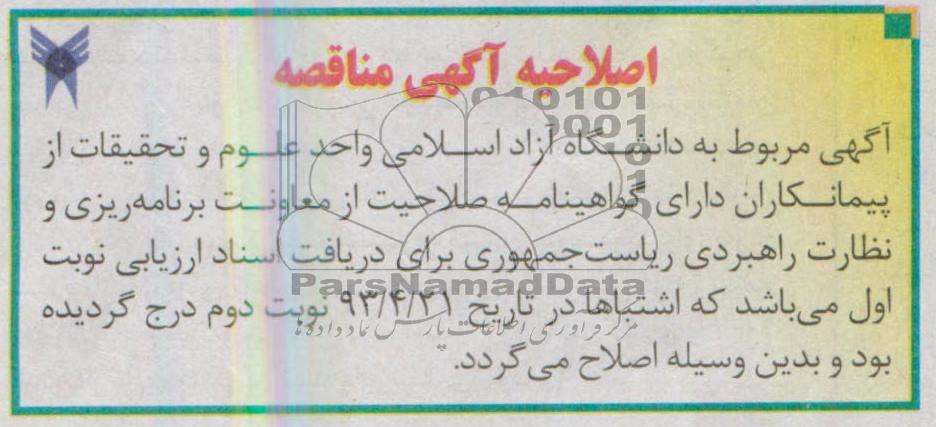 اصلاحیه آگهی مناقصه
آگهی مربوط به دانشگاه آزاد اسلامی واحد علوم و تحقیقات از
پیمانکاران دارای گواهینامه صلاحیت از معاونت برنامه‌ریزی و
نظارت راهبردی ریاست‌جمهوری برای دریافت اسناد ارزیابی نوبت
ParsNamadData
اول می‌باشد که اشتباها در تاریخ ۹۳/۴/۲۱ نوبت دوم درج گردیده
مرکز فرآوری اطلاعات پارس نماد داده ها
بود و بدین وسیله اصلاح می‌گردد.